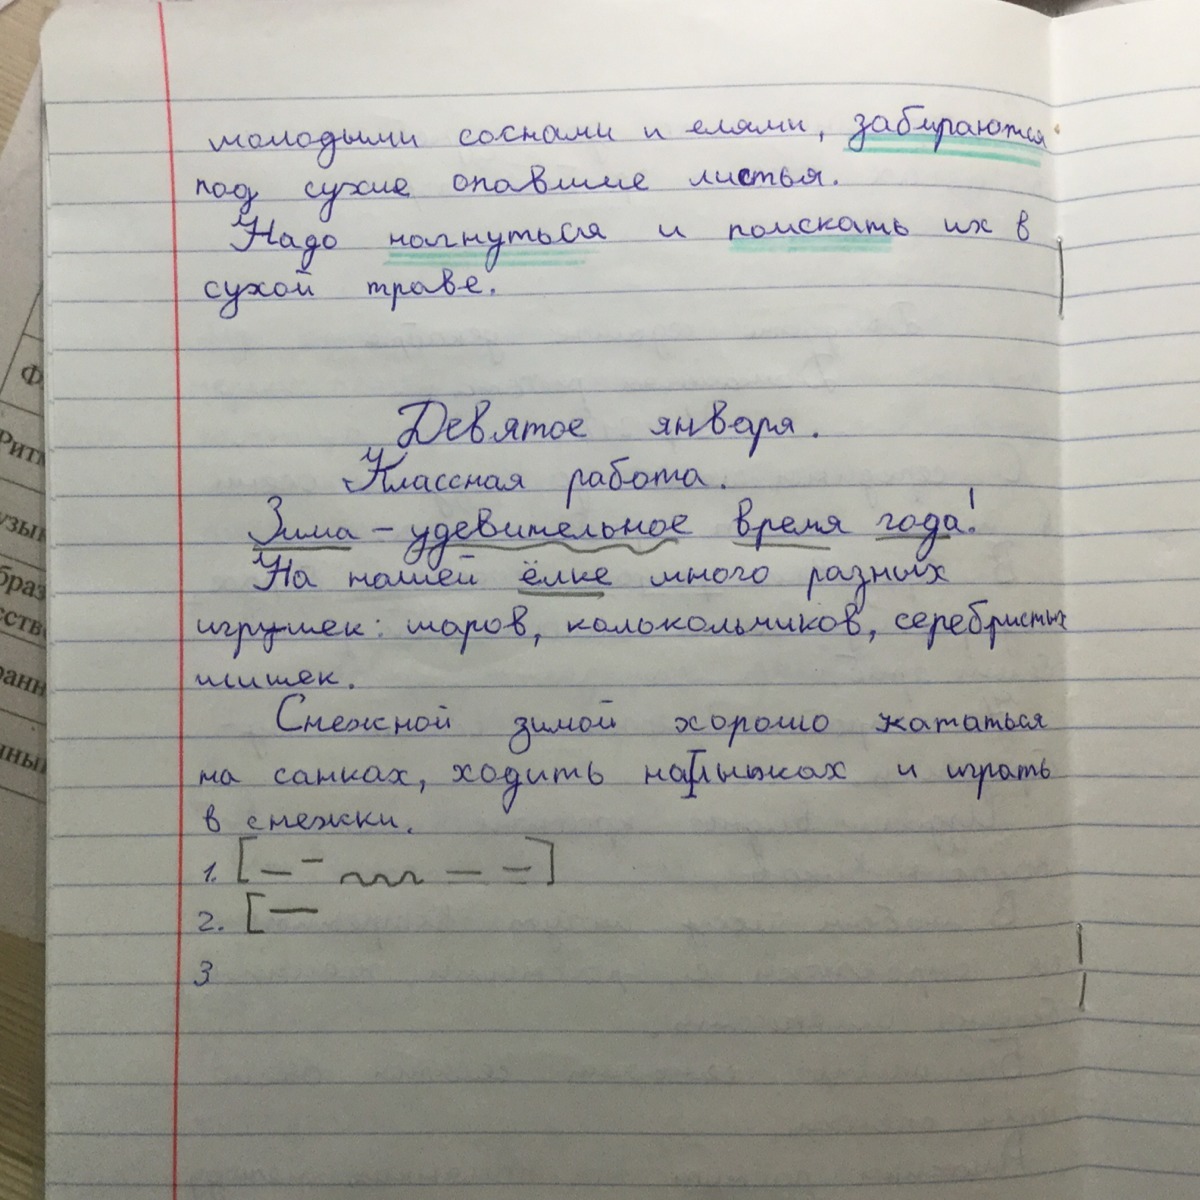 молодыми соснами и елями, забираются
под сухие опавшие листья.
Надо нагнуться и поискать их в
сухой траве.
Девятое января.
Классная работа.
Зима – удевительное время года!
На нашей ёлке много разных
игрушек: шаров, колькольчиков, серебристых
шишек.
Снежной зимой хорошо кататься
на санках, ходить на лыжах и играть
в снежки.
1. [— – — –]
2. [—
3
Ф
Ритм
узык
образ
сств
ранн
нный